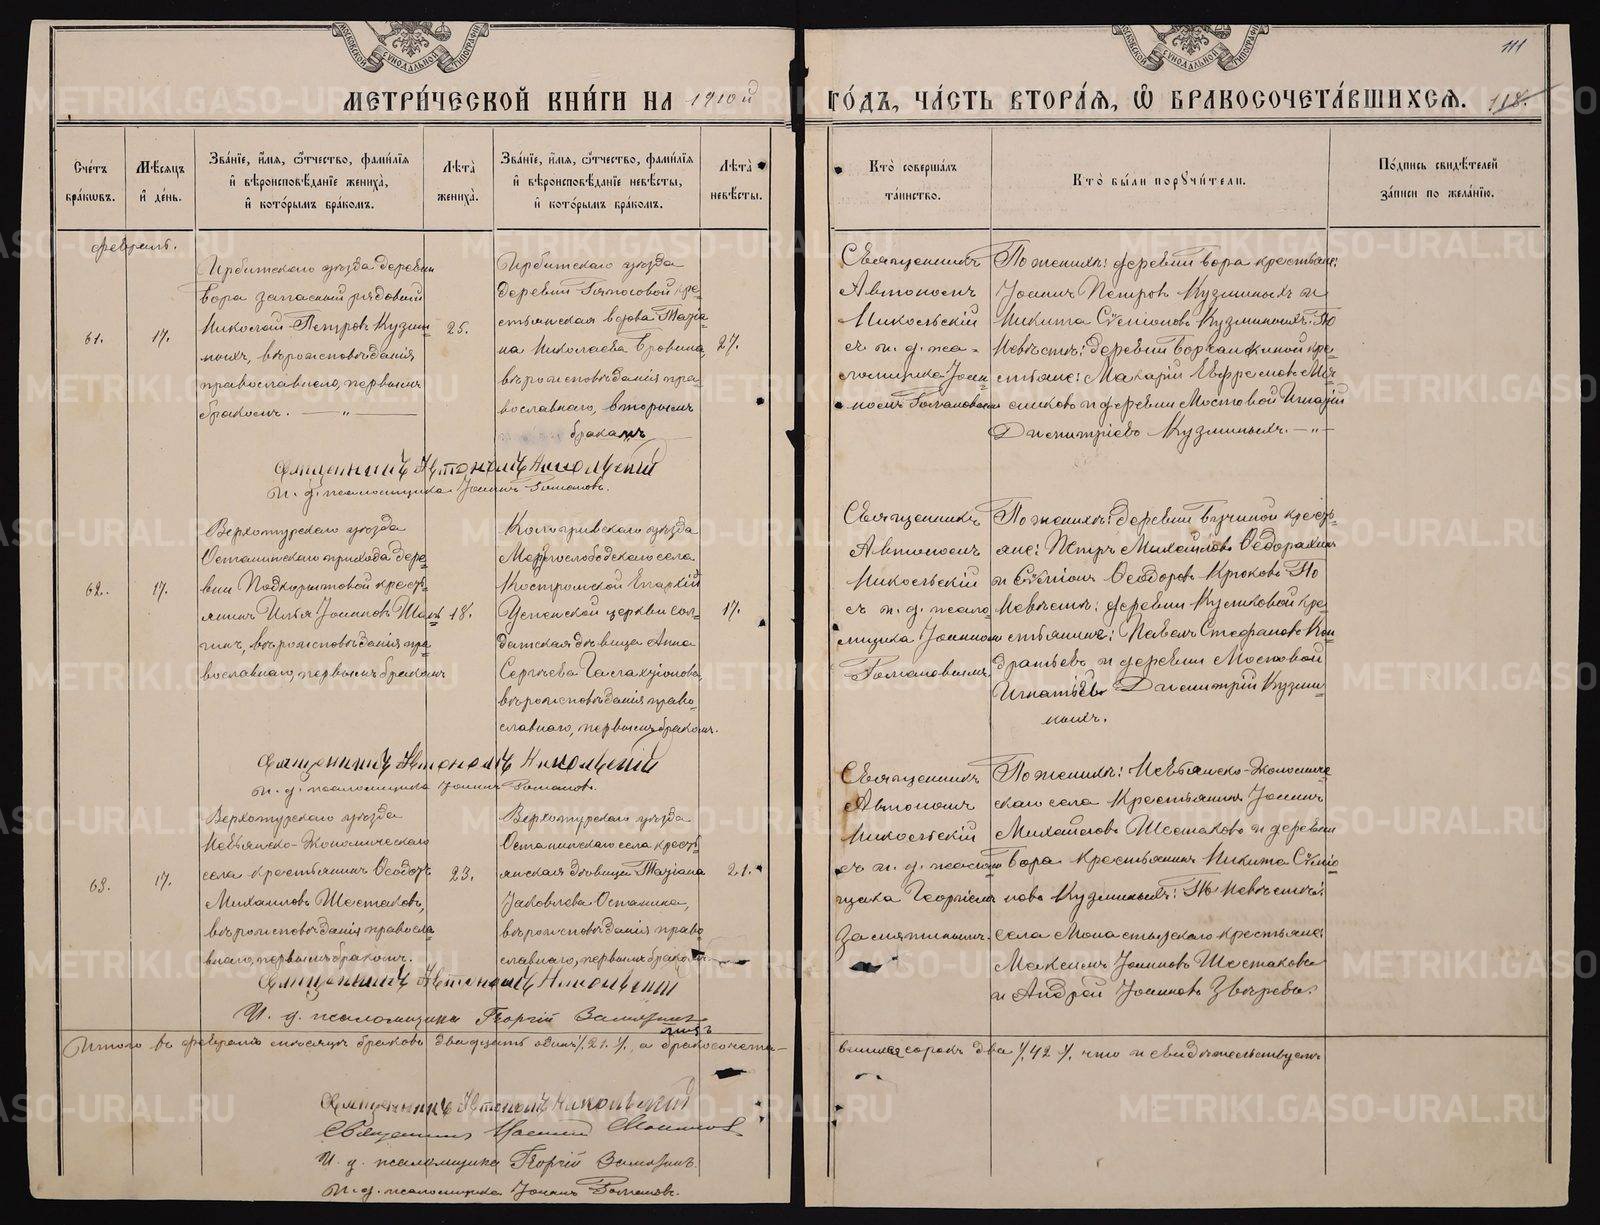 МЕТРИ́ЧЕСКОЙ КНИ́ГИ НА 1910й ГО́ДЪ, ЧА́СТЬ ВТОРА́Я, Ѡ БРАКОСОЧЕТА́ВШИХСЯ.
111
118.
Сче́тъ бра́кωвъ.
Мѣ́сяцъ и҆ де́нь.
Зва́нїе, и҆́мя, ѻ҆́тчество, фами́лїя и҆ вѣроисповѣ́данїе жениха̀, и҆ кото́рымъ бра́комъ.
Лѣта̀ жениха̀.
Зва́нїе, и҆́мя, ѻ҆́тчество, фами́лїя и҆ вѣроисповѣ́данїе невѣ́сты, и҆ кото́рымъ бра́комъ.
Лѣта̀ невѣ́сты.
Кто̀ соверша́лъ та́инство.
Кто̀ бы́ли порꙋчи́тели.
По́дпись свидѣ́телей за́писи по жела́нїю.
февраль.
61.
17.
Ирбитскаго уѣзда деревни
Бора запасный рядовый
Николай Петровъ Кузми
ныхъ, вѣроисповѣданія
православнаго, первымъ
бракомъ. — „ —
25.
Ирбитскаго уѣзда
деревни
кре-
стьянская вдова Татіа-
на Николаева
вѣроисповѣданія пра-
вославнаго, вторымъ
бракомъ
27.
Священникъ
Автономъ
Никольскій
съ и. д. пса-
ломщика Іоан-
номъ Романовымъ
По женихѣ: деревни Бора крестьяне:
Іоаннъ Петровъ Кузминыхъ и
Никита Сѵмеоновъ Кузминыхъ: По
Невѣстѣ: деревни
кре-
стьяне: Макарій Ефремовъ
и деревни Мостовой Игнатій
Димитріевъ Кузминыхъ. — „ —
Священникъ Автономъ Никольскій
И. д. псаломщика Іоаннъ Романовъ.
62.
17.
Верхотурскаго уѣзда
Осташинскаго прихода дере-
вни Подкорытовой кресть-
янинъ Илья Іоанновъ
вѣроисповѣданія пра-
вославнаго, первымъ бракомъ
18.
Кологривскаго уѣзда
села
Костромской Епархіи
Успенской церкви сол-
датская дѣвица Анна
Сергѣева
вѣроисповѣданія право-
славнаго, первымъ бракомъ.
17.
Священникъ
Автономъ
Никольскій
съ и. д. псало-
мщика Іоанномъ
Романовымъ.
По женихѣ: деревни
кресть-
яне: Петръ Михайловъ
и Сѵмеонъ Ѳеодоровъ Крюковъ По
Невѣстѣ: деревни
кре-
стьянинъ: Павелъ Стефановъ Кон-
дратьевъ и деревни Мостовой
Игнатьевъ Димитрій Кузми-
ныхъ.
Священникъ Автономъ Никольскій
И. д. псаломщика Іоаннъ Романовъ.
63.
17.
Верхотурскаго уѣзда
Невьянско-Экономическаго
села крестьянинъ Ѳеодотъ
Михаиловъ Шестаковъ,
вѣроисповѣданія правосла-
внаго, первымъ бракомъ.
23.
Верхотурскаго уѣзда
Осташинскаго села кресть-
янская дѣвица Татіана
Іаковлева Останина,
вѣроисповѣданія право-
славнаго, первымъ бракомъ
21.
Священникъ
Автономъ
Никольскій
съ и. д. псалом-
щика Георгіемъ
Замятинымъ.
По женихѣ: Невьянско-Экономиче-
скаго села Крестьянинъ Іоаннъ
Михайловъ Шестаковъ и деревни
Бора крестьянинъ Никита Сѵмео-
новъ Кузминыхъ: По Невѣстѣ:
села Монастырскаго крестьяне:
Максимъ Іоанновъ Шестаковъ
и Андрей Іоанновъ Звѣревъ.
Священникъ Автономъ Никольскій
И. д. псаломщика Георгій Замятинъ
Итого въ февралѣ мѣсяцѣ браковъ двадцать одинъ /. 21. /., а бракосочета-
вшихся сорокъ два /. 42 /. что и свидѣтельствуемъ
Священникъ Автономъ Никольскій
Священникъ
И. д. псаломщика Георгій Замятинъ.
И. д. псаломщика Іоаннъ Романовъ.
METRIKI.GASO-URAL.RU